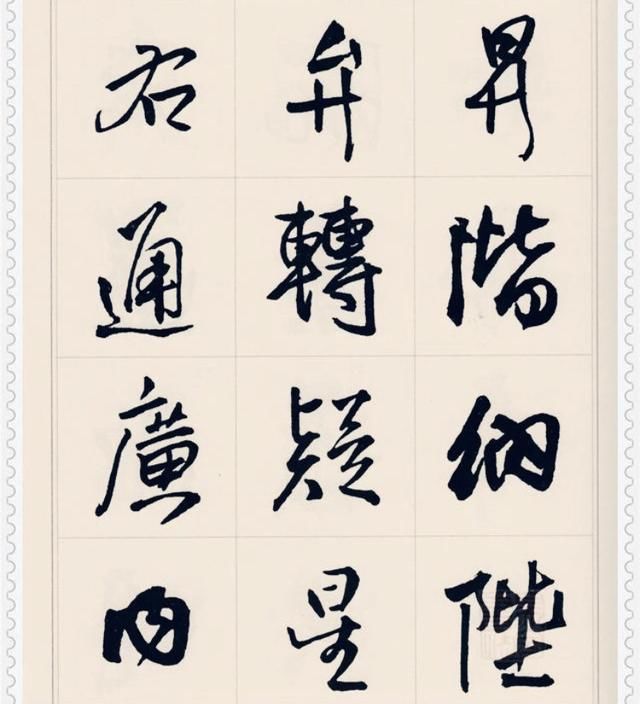 昇階納陛
弁轉疑星
右通廣內